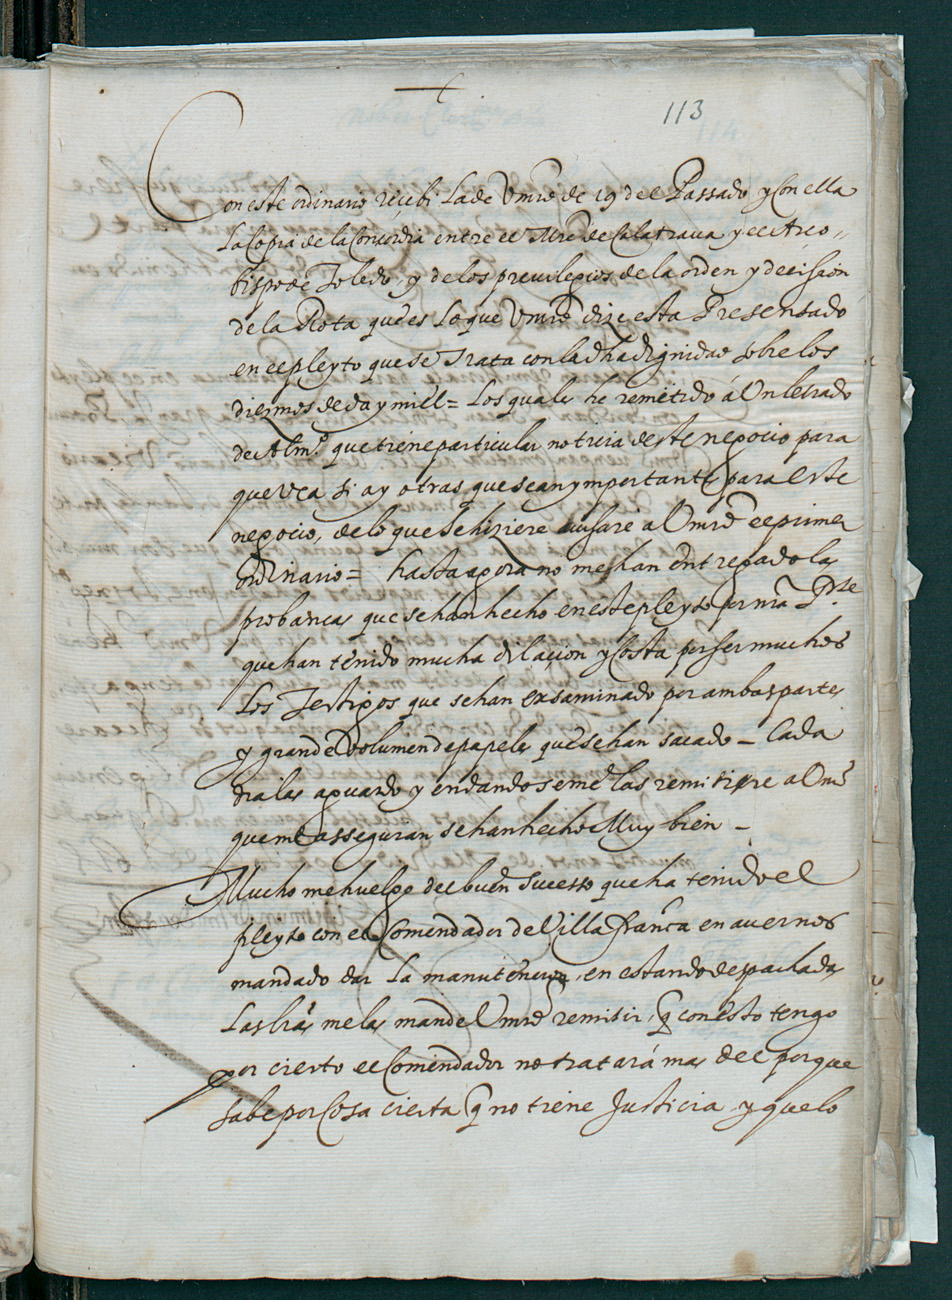 113
Con este ordinario recibi la de Vmrd de 19 del Passado y con ella
la Copia de la Concordia entre el Mre de Calatraua y el Arço,,
bispo de Toledo, y de los preuilegios de la orden y decission
de la Rota que es lo que Vmrd dize esta Presentado
en el pleyto que se Trata con la dha dignidad sobre los
diezmos de daymiel = los quales he remitido á Un letrado
de Alm.o que tiene particular noticia deste negocio para
que vea si ay otras que sean ymportantes para este
negocio, de lo que se hiziere auisare a Vmrd el primer
ordinario = hasta agora no me han entregado las
probanças que se han hecho en este pleyto por nra Pte
que han tenido mucha dilacion y Costa por ser muchos
los Testigos que se han exsaminado por ambas partes
y grande Volumen de papeles que se han sacado – Cada
dia las aguardo y en dandoseme las remitire a Vmd
que me asseguran se han hecho Muy bien –
Mucho me huelgo del buen sucesso que ha tenido el
pleyto con el Comendador de Villafranca en auernos
mandado dar la manutencion, en estando despachadas
las bras me las mande Vmrd remitir, q con esto tengo
por cierto el Comendador no tratará mas del porque
sabe por Cosa cierta q no tiene Justicia y que lo